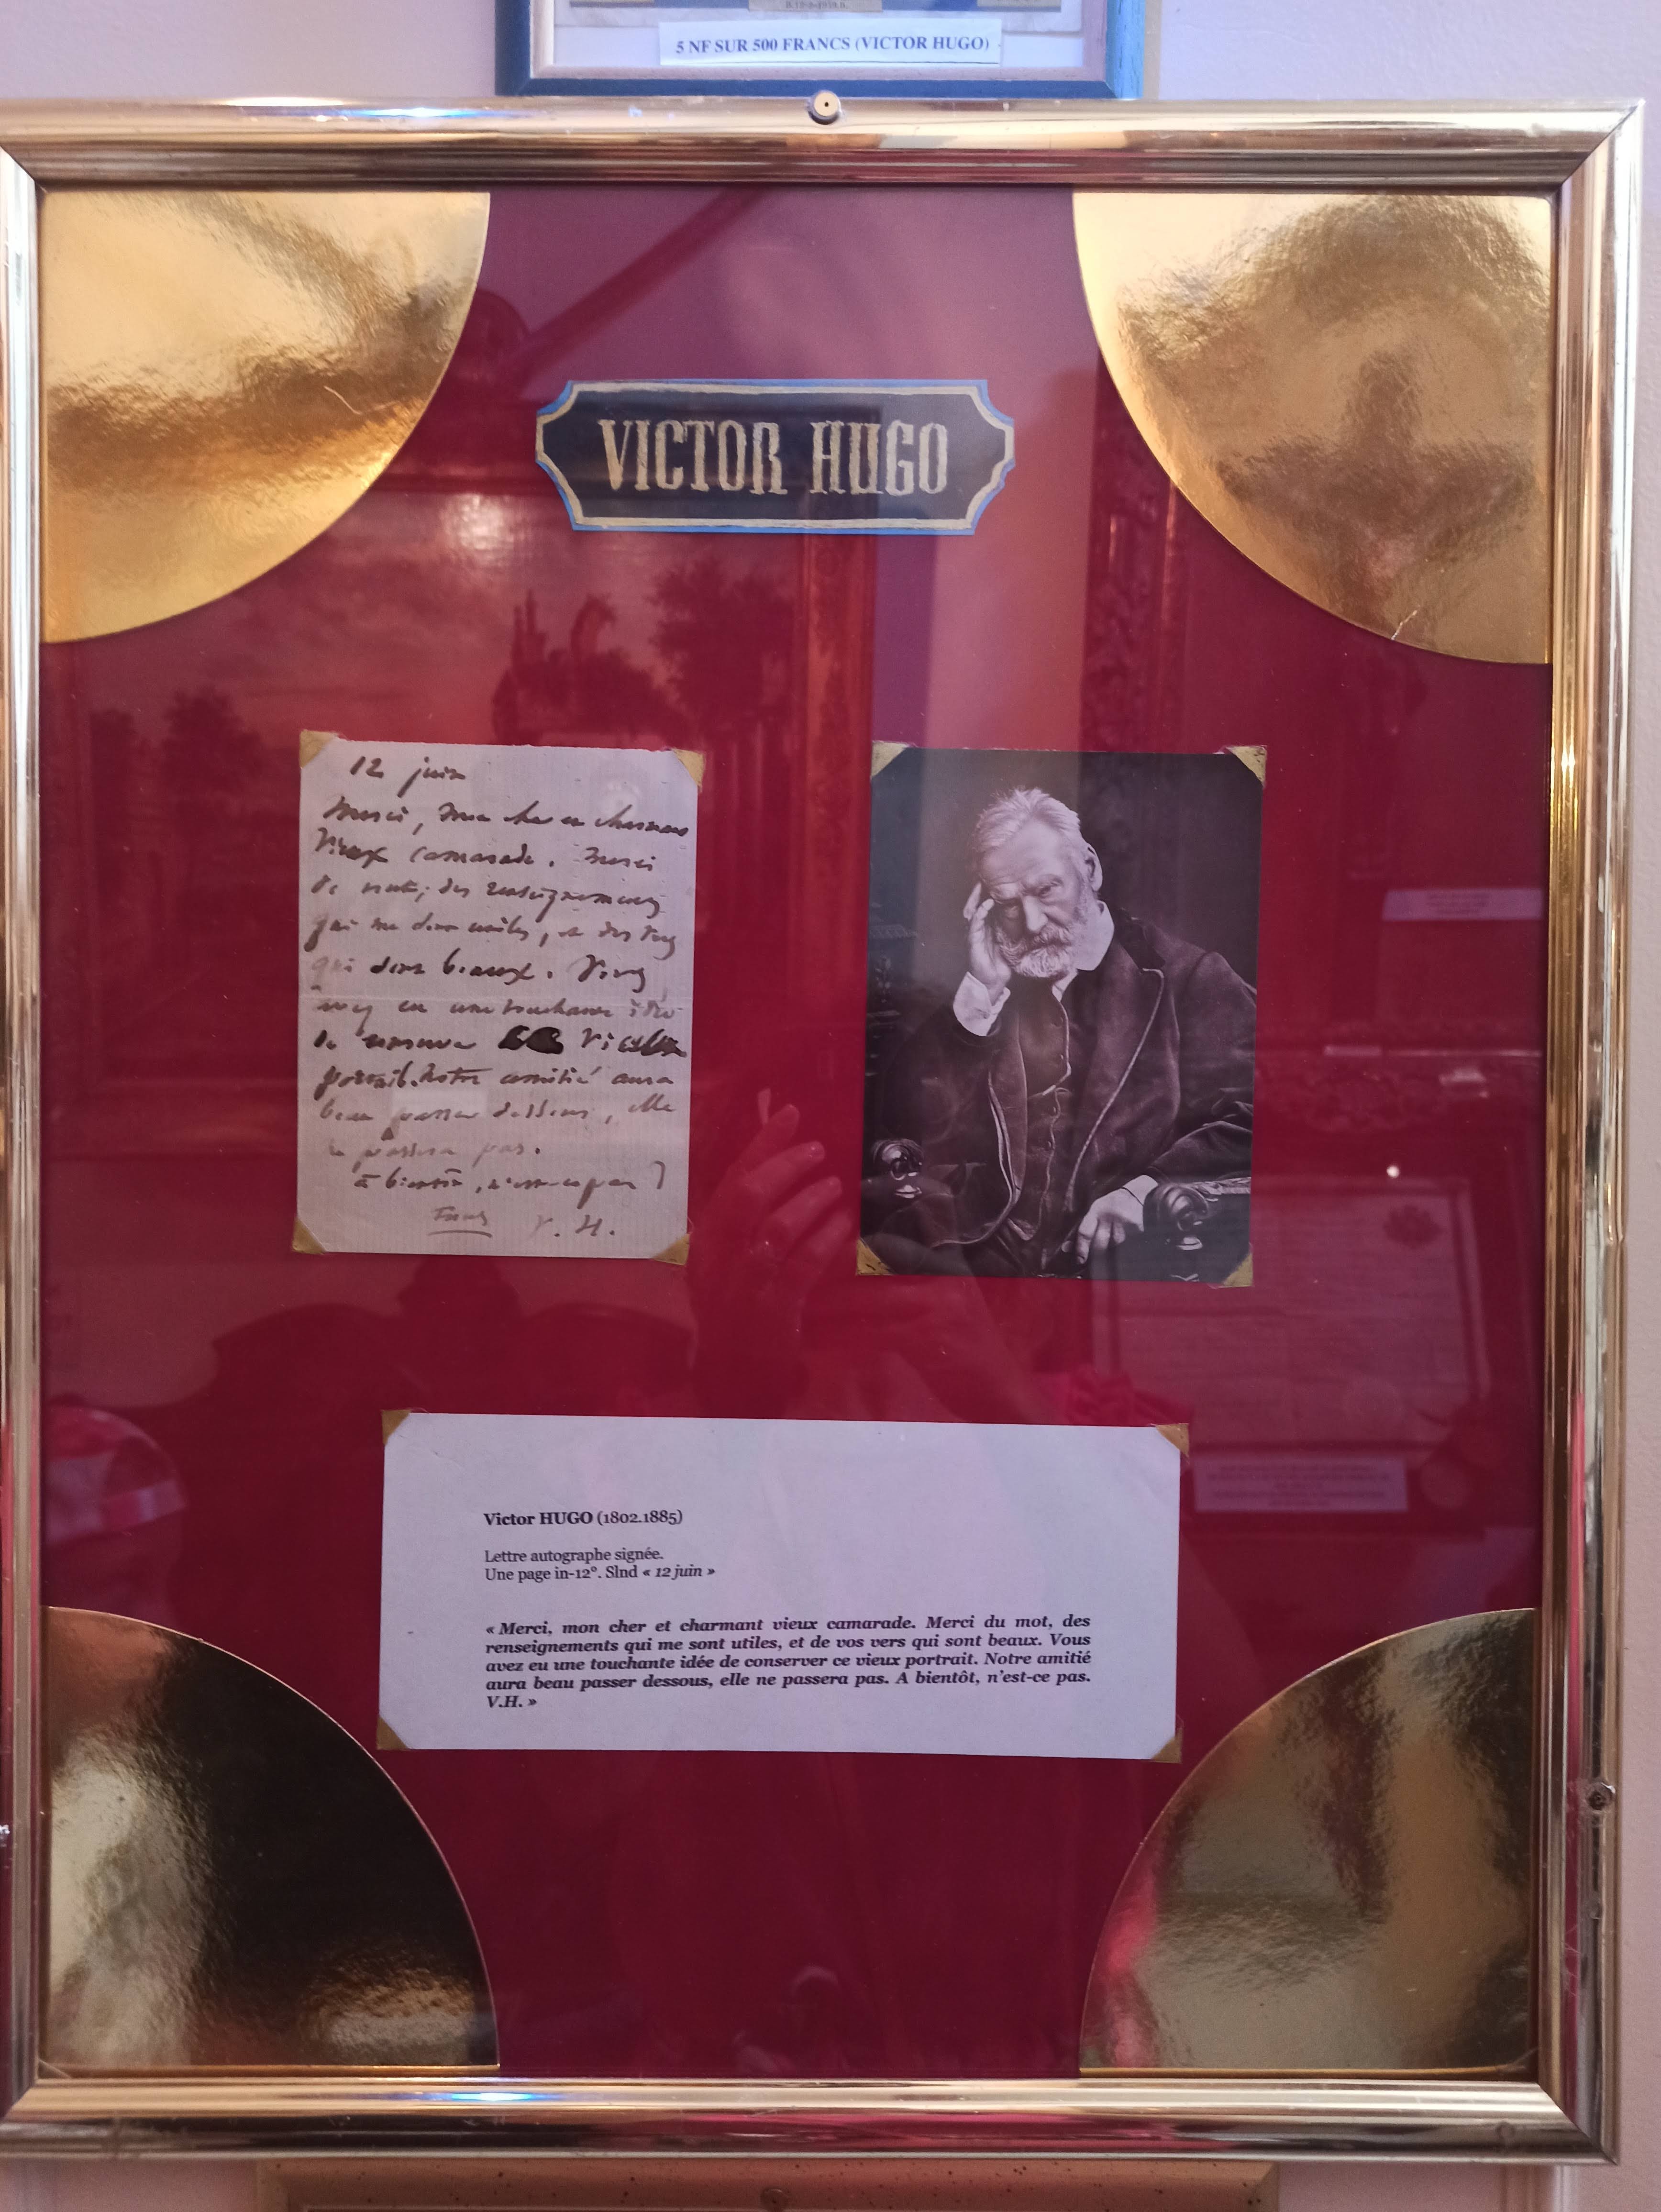 5 NF SUR 500 FRANCS (VICTOR HUGO)
VICTOR HUGO
12 juin
Merci, mon cher et charmant
vieux camarade. Merci
du mot, des renseignements
qui me sont utiles, et des vers
qui sont beaux. Vous
avez eu une touchante idée
de conserver vieux
portrait. Notre amitié aura
beau passer dessous, elle
ne passera pas.
à bientôt, n'est-ce pas ?
V. H.
Victor HUGO (1802.1885)
Lettre autographe signée.
Une page in-12°. Slnd « 12 juin »
« Merci, mon cher et charmant vieux camarade. Merci du mot, des
renseignements qui me sont utiles, et de vos vers qui sont beaux. Vous
avez eu une touchante idée de conserver ce vieux portrait. Notre amitié
aura beau passer dessous, elle ne passera pas. A bientôt, n'est-ce pas.
V.H. »